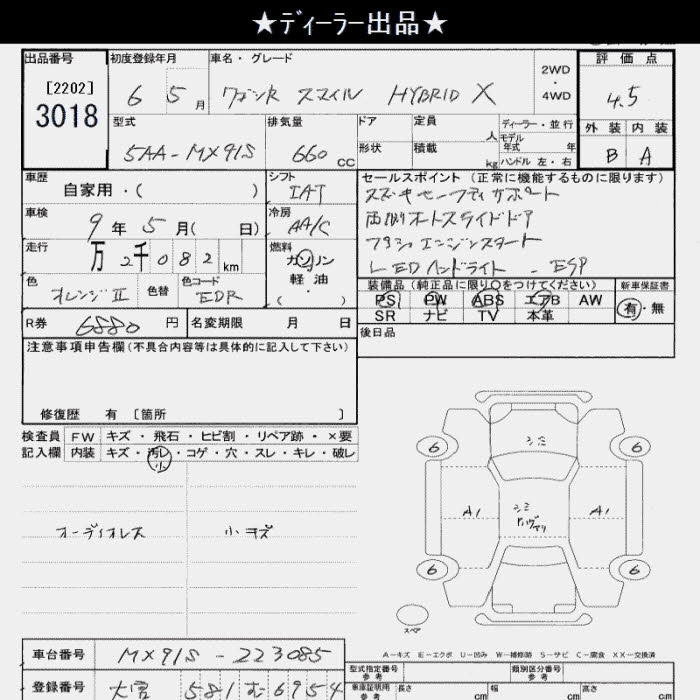 ★ディーラー出品★
出品番号 初度登録年月 車名・グレード 2WD・4WD 評価点
[2202] 3018 6 5月 ワゴンR スマイル HYBRID X 4.5
型式 排気量 ドア 定員 人 ディーラー・並行 外装 内装
モデル年式 年
5AA-MX91S 660cc 形状 積載 kg ハンドル 左・右 B A
車歴 自家用・( ) シフト IAT セールスポイント (正常に機能するものに限ります)
スズキセーフティサポート
車検 9年5月( 日) 冷房 AA/C 両側オートスライドドア
走行 万 2千082km 燃料 ガソリン・軽油 ( ) プッシュエンジンスタート
LEDヘッドライト - ESP
色 オレンジII 色替 色コード EDR 装備品 (純正品に限り○をつけてください) 新車保証書
PS PW ABS エアB AW 有・無
SR ナビ TV 本革
R券 6880円 名変期限 月 日 後日品
注意事項申告欄(不具合内容等は具体的に記入して下さい)
修復歴 有 [箇所 ]
検査員 FW キズ・飛石・ヒビ割・リペア跡・×要
記入欄 内装 キズ・汚レ・コゲ・穴・スレ・キレ・破レ
小
オーディオレス 小キズ
6 6
A1 A1
6 6
スペア
A-キズ E-エクボ U-凹み W-補修跡 S-サビ C-腐食 XX-交換済
車台番号 MX91S-223085
型式指定番号 参考 類別区分番号 参考
登録番号 大宮 581 む 6954
車庫証明用 参考 長さ cm 幅 cm 高さ cm